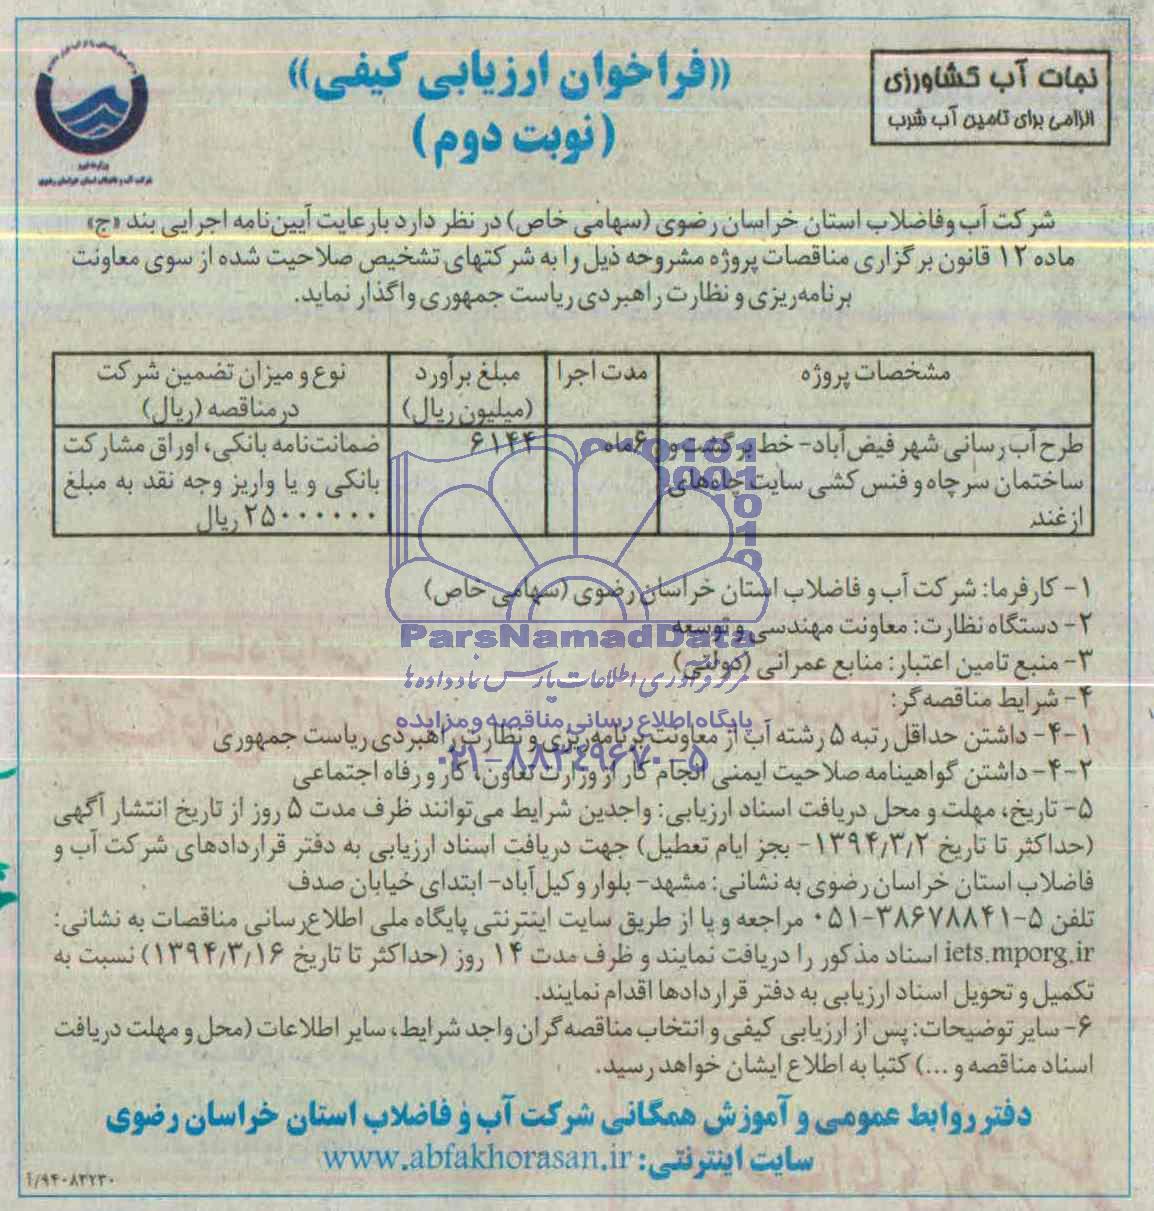 نجات آب کشاورزی
الزامی برای تامین آب شرب
«فراخوان ارزیابی کیفی»
(نوبت دوم)
وزارت نیرو
شرکت آب و فاضلاب استان خراسان رضوی
شرکت آب وفاضلاب استان خراسان رضوی (سهامی خاص) در نظر دارد بارعایت آیین‌نامه اجرایی بند «ج»
ماده ۱۲ قانون برگزاری مناقصات پروژه مشروحه ذیل را به شرکتهای تشخیص صلاحیت شده از سوی معاونت
برنامه‌ریزی و نظارت راهبردی ریاست جمهوری واگذار نماید.
مشخصات پروژه
مدت اجرا
مبلغ برآورد
(میلیون ریال)
نوع و میزان تضمین شرکت
در مناقصه (ریال)
طرح آب رسانی شهر فیض‌آباد- خط برگشت و
ساختمان سرچاه و فنس کشی سایت چاه‌های
ازغند
۶ماه
۶۱۴۴
ضمانت‌نامه بانکی، اوراق مشارکت
بانکی و یا واریز وجه نقد به مبلغ
۲۵۰۰۰۰۰۰۰ ریال
۱- کارفرما: شرکت آب و فاضلاب استان خراسان رضوی (سهامی خاص)
۲- دستگاه نظارت: معاونت مهندسی و توسعه
۳- منبع تامین اعتبار: منابع عمرانی (دولتی)
۴- شرایط مناقصه‌گر:
۴-۱- داشتن حداقل رتبه ۵ رشته آب از معاونت برنامه‌ریزی و نظارت راهبردی ریاست جمهوری
۴-۲- داشتن گواهینامه صلاحیت ایمنی انجام کار از وزارت تعاون، کار و رفاه اجتماعی
۵- تاریخ، مهلت و محل دریافت اسناد ارزیابی: واجدین شرایط می‌توانند ظرف مدت ۵ روز از تاریخ انتشار آگهی
(حداکثر تا تاریخ ۱۳۹۴/۳/۲- بجز ایام تعطیل) جهت دریافت اسناد ارزیابی به دفتر قراردادهای شرکت آب و
فاضلاب استان خراسان رضوی به نشانی: مشهد- بلوار وکیل‌آباد- ابتدای خیابان صدف
تلفن ۵-۳۸۶۷۸۸۴۱-۰۵۱ مراجعه و یا از طریق سایت اینترنتی پایگاه ملی اطلاع‌رسانی مناقصات به نشانی:
iets.mporg.ir اسناد مذکور را دریافت نمایند و ظرف مدت ۱۴ روز (حداکثر تا تاریخ ۱۳۹۴/۳/۱۶) نسبت به
تکمیل و تحویل اسناد ارزیابی به دفتر قراردادها اقدام نمایند.
۶- سایر توضیحات: پس از ارزیابی کیفی و انتخاب مناقصه‌گران واجد شرایط، سایر اطلاعات (محل و مهلت دریافت
اسناد مناقصه و ...) کتبا به اطلاع ایشان خواهد رسید.
دفتر روابط عمومی و آموزش همگانی شرکت آب و فاضلاب استان خراسان رضوی
سایت اینترنتی: www.abfakhorasan.ir
۹۴۰۸۳۲۳۰/آ
ParsNamadData
مرکز فرآوری اطلاعات پارس نماد داده‌ها
پایگاه اطلاع رسانی مناقصه و مزایده
۰۲۱-۸۸۳۴۹۶۷۰-۵